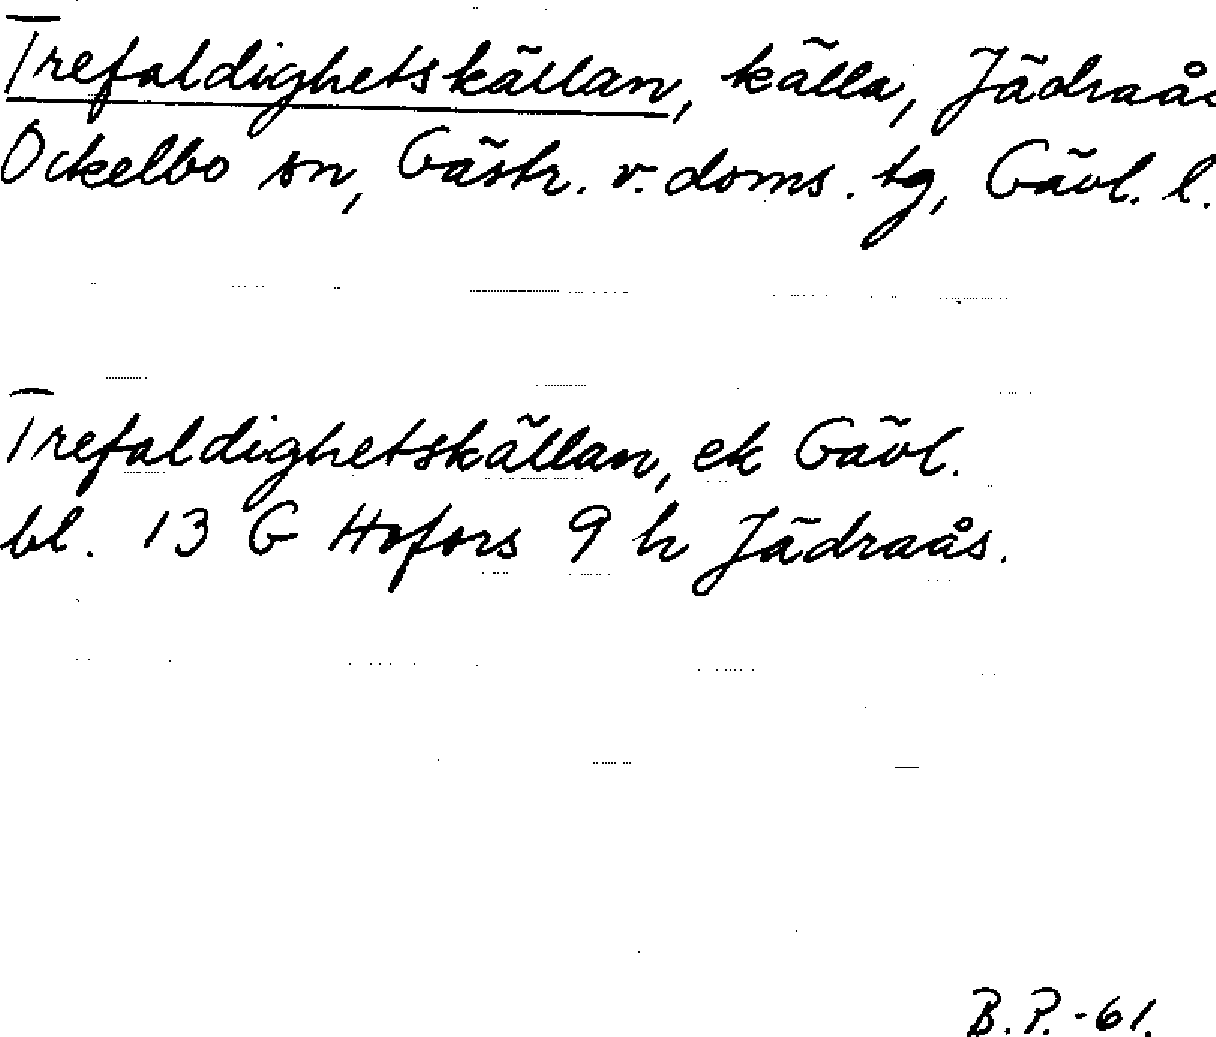 Trefaldighetskällan, källa, Jädraås
Ockelbo sn, Gästr. v. doms. tg, Gävl. l.
Trefaldighetskällan, ek Gävl.
bl. 13 G Hofors 9 h Jädraås.
B.P.-61.